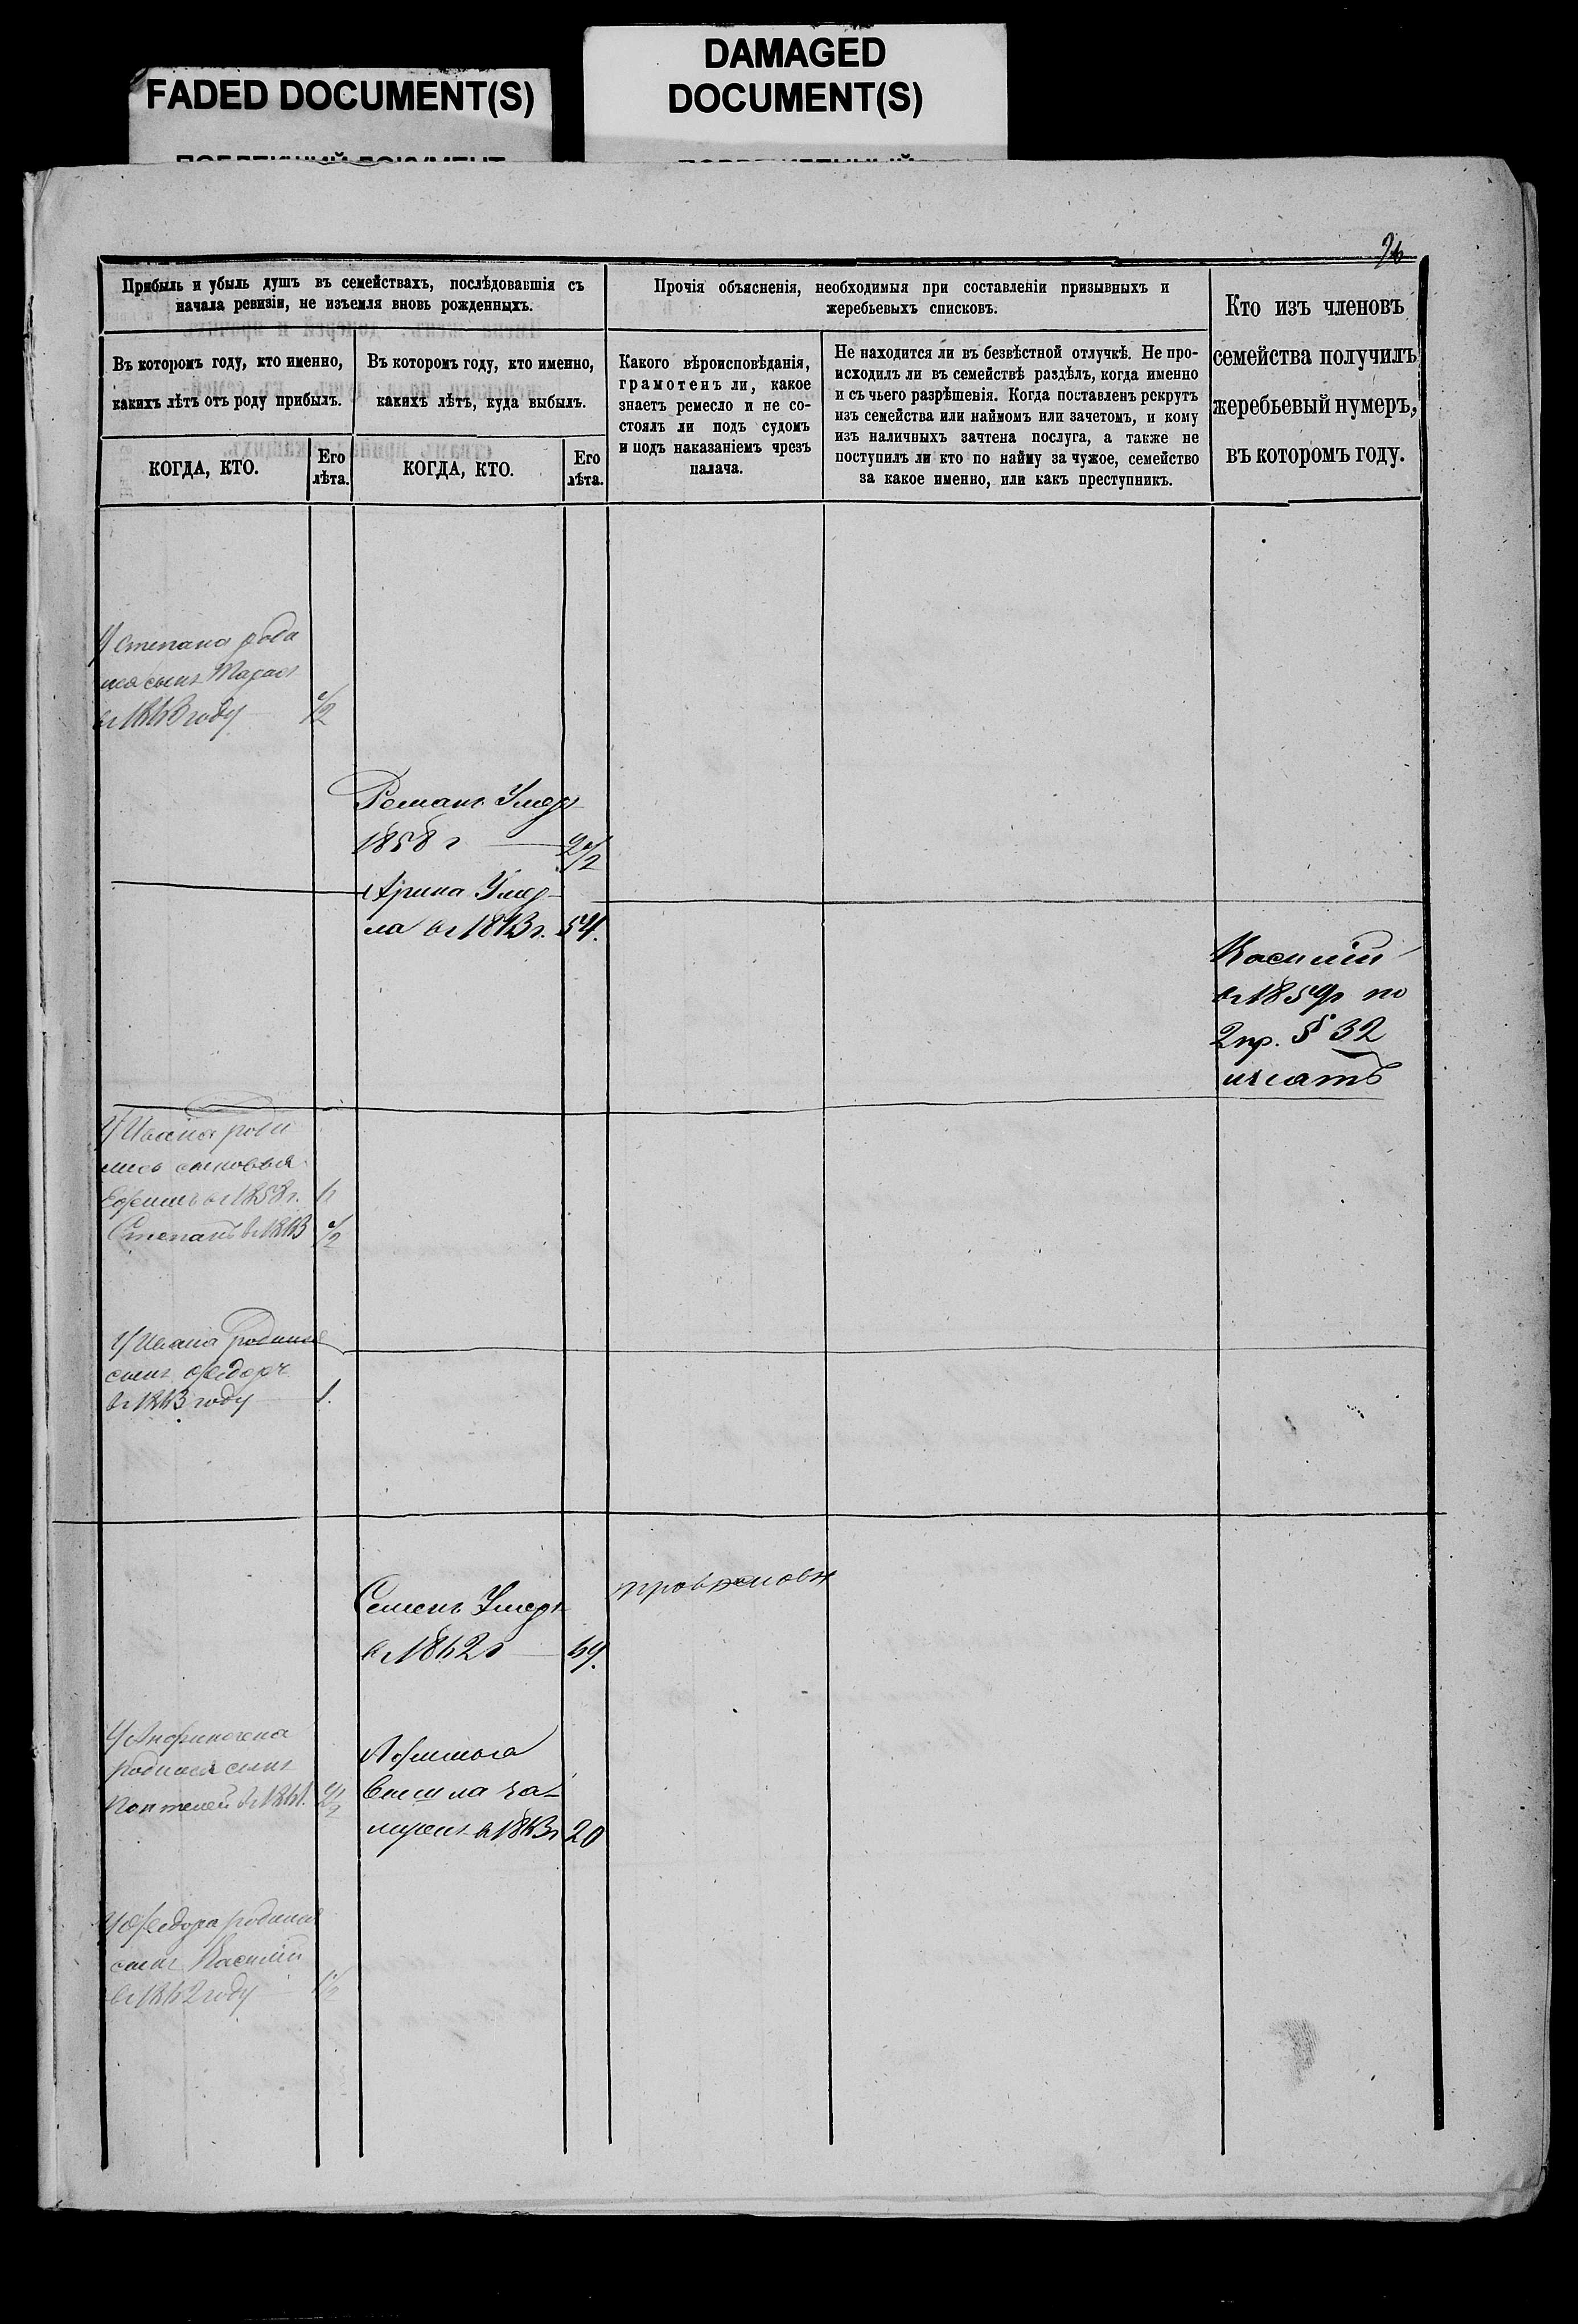 FADED DOCUMENT(S)
DAMAGED
DOCUMENT(S)
96
Прибыль и убыль душъ въ семействахъ, послѣдовавшія съ
начала ревизіи, не изъемля вновь рожденныхъ.
Прочія объясненія, необходимыя при составленіи призывныхъ и
жеребьевыхъ списковъ.
Кто изъ членовъ
семейства получилъ
жеребьевый нумеръ,
въ которомъ году.
Въ которомъ году, кто именно,
какихъ лѣтъ отъ роду прибылъ.
Въ которомъ году, кто именно,
какихъ лѣтъ, куда выбылъ.
Какого вѣроисповѣданія,
грамотенъ ли, какое
знаетъ ремесло и не со-
стоялъ ли подъ судомъ
и подъ наказаніемъ чрезъ
палача.
Не находится ли въ безвѣстной отлучкѣ. Не про-
исходилъ ли въ семействѣ раздѣлъ, когда именно
и съ чьего разрѣшенія. Когда поставленъ рекрутъ
изъ семейства или наймомъ или зачетомъ, и кому
изъ наличныхъ зачтена послуга, а также не
поступилъ ли кто по найму за чужое, семейство
за какое именно, или какъ преступникъ.
КОГДА, КТО.
Его
лѣта.
КОГДА, КТО.
Его
лѣта.
У Степана роди
лся сынъ Тарас
въ 1863 году 1/2
Романъ Умеръ
1858 г 2 1/2
Арина Умер
ла въ 1863 г. 54.
Василій
въ 1859г по
2 пр. § 32
изъятъ
У Ивана роди
лись сыновья
Ефимъ въ 1858 г. 6
Степанъ въ 1863 1/2
У Ивана родился
сынъ Федоръ
въ 1863 году 1.
Семенъ Умеръ
въ 1862 г 69.
У Анфиногена
родился сынъ
Пантелей въ 1861. 2 1/2
Афимья
вышла за-
мужъ въ 1863г 20
У Федора родился
сынъ Василій
въ 1862 году 1 1/2